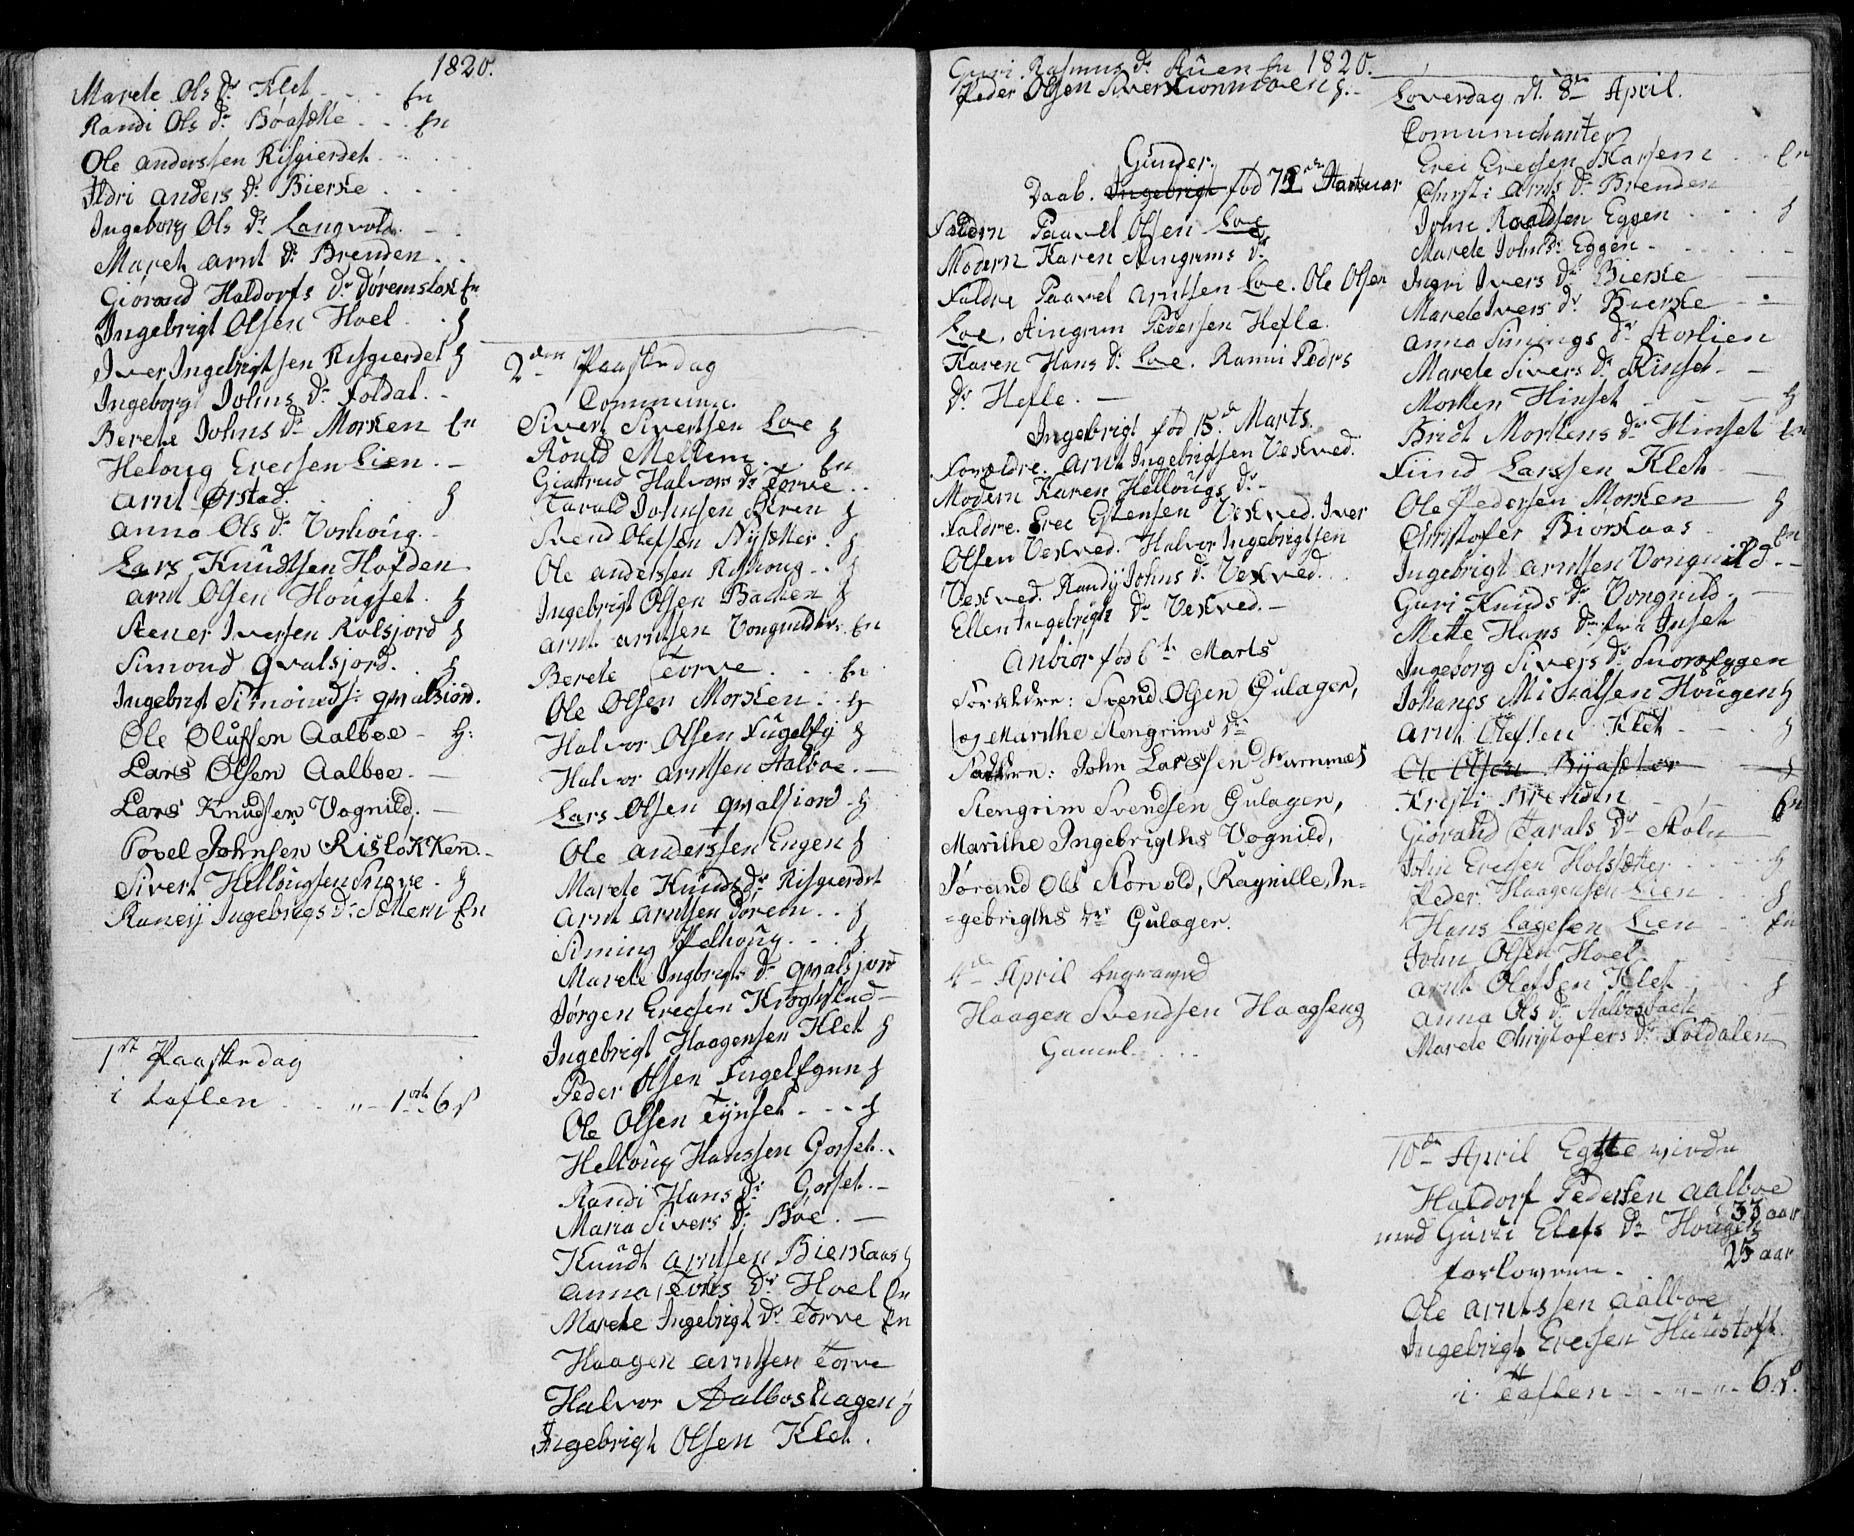 1820.
Marete Ols Dr Klet - - - En
Randi Ols Dr Boasætte - - - En
Ole Anderssen Risgierdet - - -
Ildri Anders Dr Bierke - - -
Ingeborg Ols Dr Langvold - -
Maret Arnt Dr Brenden - -
Giorand Haldorfs Dr Døremslok En
Ingebrigt Olsen Hoel - H
Iver Ingebrigtsen Risgierdet H
Ingeborg Johns Dr Foldal -
Berete Johns Dr Morken En
Heloug Erecsen Lien -
Arnt Ørstad - - - H
Anna Ols Dr Vorhoug -
Lars Knudtsen Hafden
Arnt Olsen Hougset - H
Stener Iversen Rolsjord H
Simond Qvalsjord - H
Ingebrigt Simonds: qvalsiord.
Ole Olufsen Aalboe - H:
Lars Olsen Aalboe. -
Lars Knudsen Vognild. -
Povel Johnsen Risløkken. -
Sivert Hellougsen Snove - H
Raneij Ingebrigs Dr Sætteren En
1st Paaskedag
i taflen - - " - 1 ort 6 s
2den Paaskedag
Commun.
Sivert Sivertsen Loe H
Roald Mellem - En
Giertrud Halvors Dr Torve -
Tarald Johnsen Skren H
Svend Olefsen Nysætter - H
Ole Anderssen Rishoug - H
Ingebrigt Olsen Backen H
Arnt Arntsen Vongnild - En
Berete Torve - - En
Ole Olsen Morken - H
Halvor Olsen Fugelfy H
Halvor Arntsen Aalboe. -
Lars Olsen qvalsiord - H
Ole Anderssen Engen H
Marete Knuds Dr Risgierdet
Arnt Arntsen Dorem - H
Siming Pelhoug - - H
Marete Ingbrigts Dr qvalsjord
Jørgen Erecsen Krogstad -
Ingebrigt Haagensen Klet H
Peder Olsen Fugelfgnn H
Ole Olsen Tijnset - - - H
Helloug Hanssen Gorset -
Randi Hans Dr Gorset. -
Maria Sivers Dr Boe. -
Knudt Arntsen Bierkaas H
Anna Tores Dr Hoel En
Marete Ingebrigt Dr Torve En
Haagen Arntsen Torve
Halvor Aalboshagen H
Ingebrigt Olsen Klet.
Guri Rasmus Dr Stuen En 1820.
Peder Olsen Sivertsonmoen H. -
Gunder.
Daab. Ingebrigt fød 7de Martsuar
Fadern Paavel Olsen Loe
Modern Karen Aingrims Dr
Faldre Paavel Arntsen Loe. Ole Olsen
Loe. Aingrim Pedersen Hefle.
Karen Hans Dr Loe. Ranni Peders
Dr Hefle. -
Ingebrigt fød 15de Marts.
Forældre. Arnt Ingebrigtsen Vekved.
Modern Karen Hellougs Dr -
Faldre. Erec Estensen Vekved. Iver
Olsen Vekved. Halvor Ingebrigtsen
Vekved. Randij Johns Dr Vekved.
Ellen Ingebrigts Dr Vekved. -
Anbiør fød 6te Marts
Forældre: Svend Olsen Gulager,
og Marithe Stengrims Dr
Faddern: John Larssen Furnnæs
Stengrim Svendsen Gulager,
Marithe Ingebrigths Vognild,
Jørand Ols Storvold, Ragnille, In=
=gebrigths Dr Gulager.
4de April begraved
Haagen Svendsen Haagseng
Gamel. . . .
Løverdag d. 8de April.
Comunichanter
Erec Erecsen Skarsem - En
Christi Arnts Dr Brenden
John Roaldsen Eggen - - H
Marete Johns Dr Eggen - -
Ingri Ivers Dr Bierke -
Marete Ivers Dr Bierke - -
Anna Simings Dr Storlien
Marete Sivers Dr Rinset - -
Morten Hinset - - - H
Bridt Mortens Dr Hinset En
Fiind Larssen Klet -
Ole Pedersen Morken - H
Christofer Biorkaas - En
Ingebrigt Arntsen Vongnild. -
Guri Knuds Dr Vongnild. -
Mette Hans Dr fra Inset
Ingeborg Sivers Dr Snorofygen
Johanes Micalsen Hougen H
Arnt Olefsen Klet - - H
Ole Olsen Byasæter - H
Kristi Bretiden - - En
Giorand Tarals Dr Stoln -
John Erecsen Holsætter - - H
Peder Haagensen Lien - H
Hans Lagesen Lien - En
John Olsen Hoel -
Arnt Olefsen Klet - H
Anna Ols Dr Aalbosbach
Marete Christofers Dr Foldalen
10de April Egteviede
Haldorf Pedersen Aalboe
33 aar
med Guri Elefs Dr Hougen
25 aar
forlovere.
Ole Arntssen Aalboe
Ingebrigt Erecsen Huustoft
i Taflen - - " - " - 6 s.